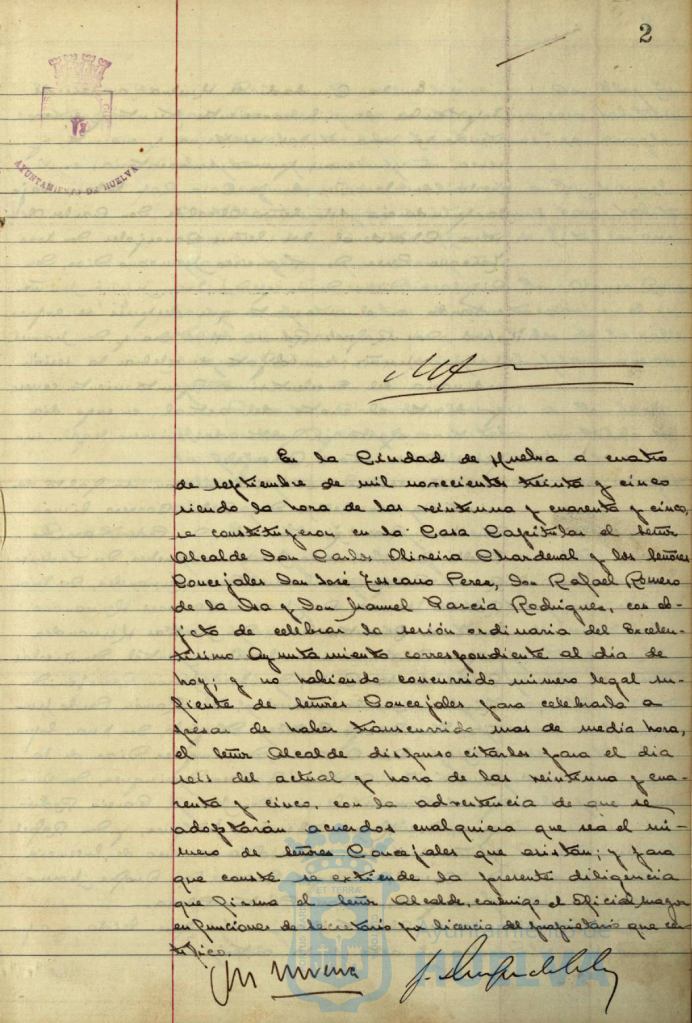 2
AYUNTAMIENTO DE HUELVA
En la Ciudad de Huelva a cuatro
de septiembre de mil novecientos treinta y cinco
siendo la hora de las veintiuna y cuarenta y cinco,
se constituyeron en la Casa Capitular el Señor
Alcalde Don Carlos Oliveira Chardenal y los Señores
Concejales Don José Toscano Perez, Don Rafael Romero
de la Isa y Don Manuel García Rodriguez, con ob-
jeto de celebrar la sesión ordinaria del Excelen-
tisimo Ayuntamiento correspondiente al dia de
hoy; y no habiendo concurrido número legal su-
ficiente de Señores Concejales para celebrarla a
pesar de haber transcurrido mas de media hora,
el Señor Alcalde dispuso citarlos para el dia
seis del actual y hora de las veintiuna y cua-
renta y cinco, con la advertencia de que se
adoptarán acuerdos cualquiera que sea el nú-
mero de Señores Concejales que asistan; y para
que conste se extiende la presente diligencia
que firma el Señor Alcalde, conmigo el Oficial mayor
en funciones de Secretario por licencia del propietario que cer-
tifico.
HUELVA